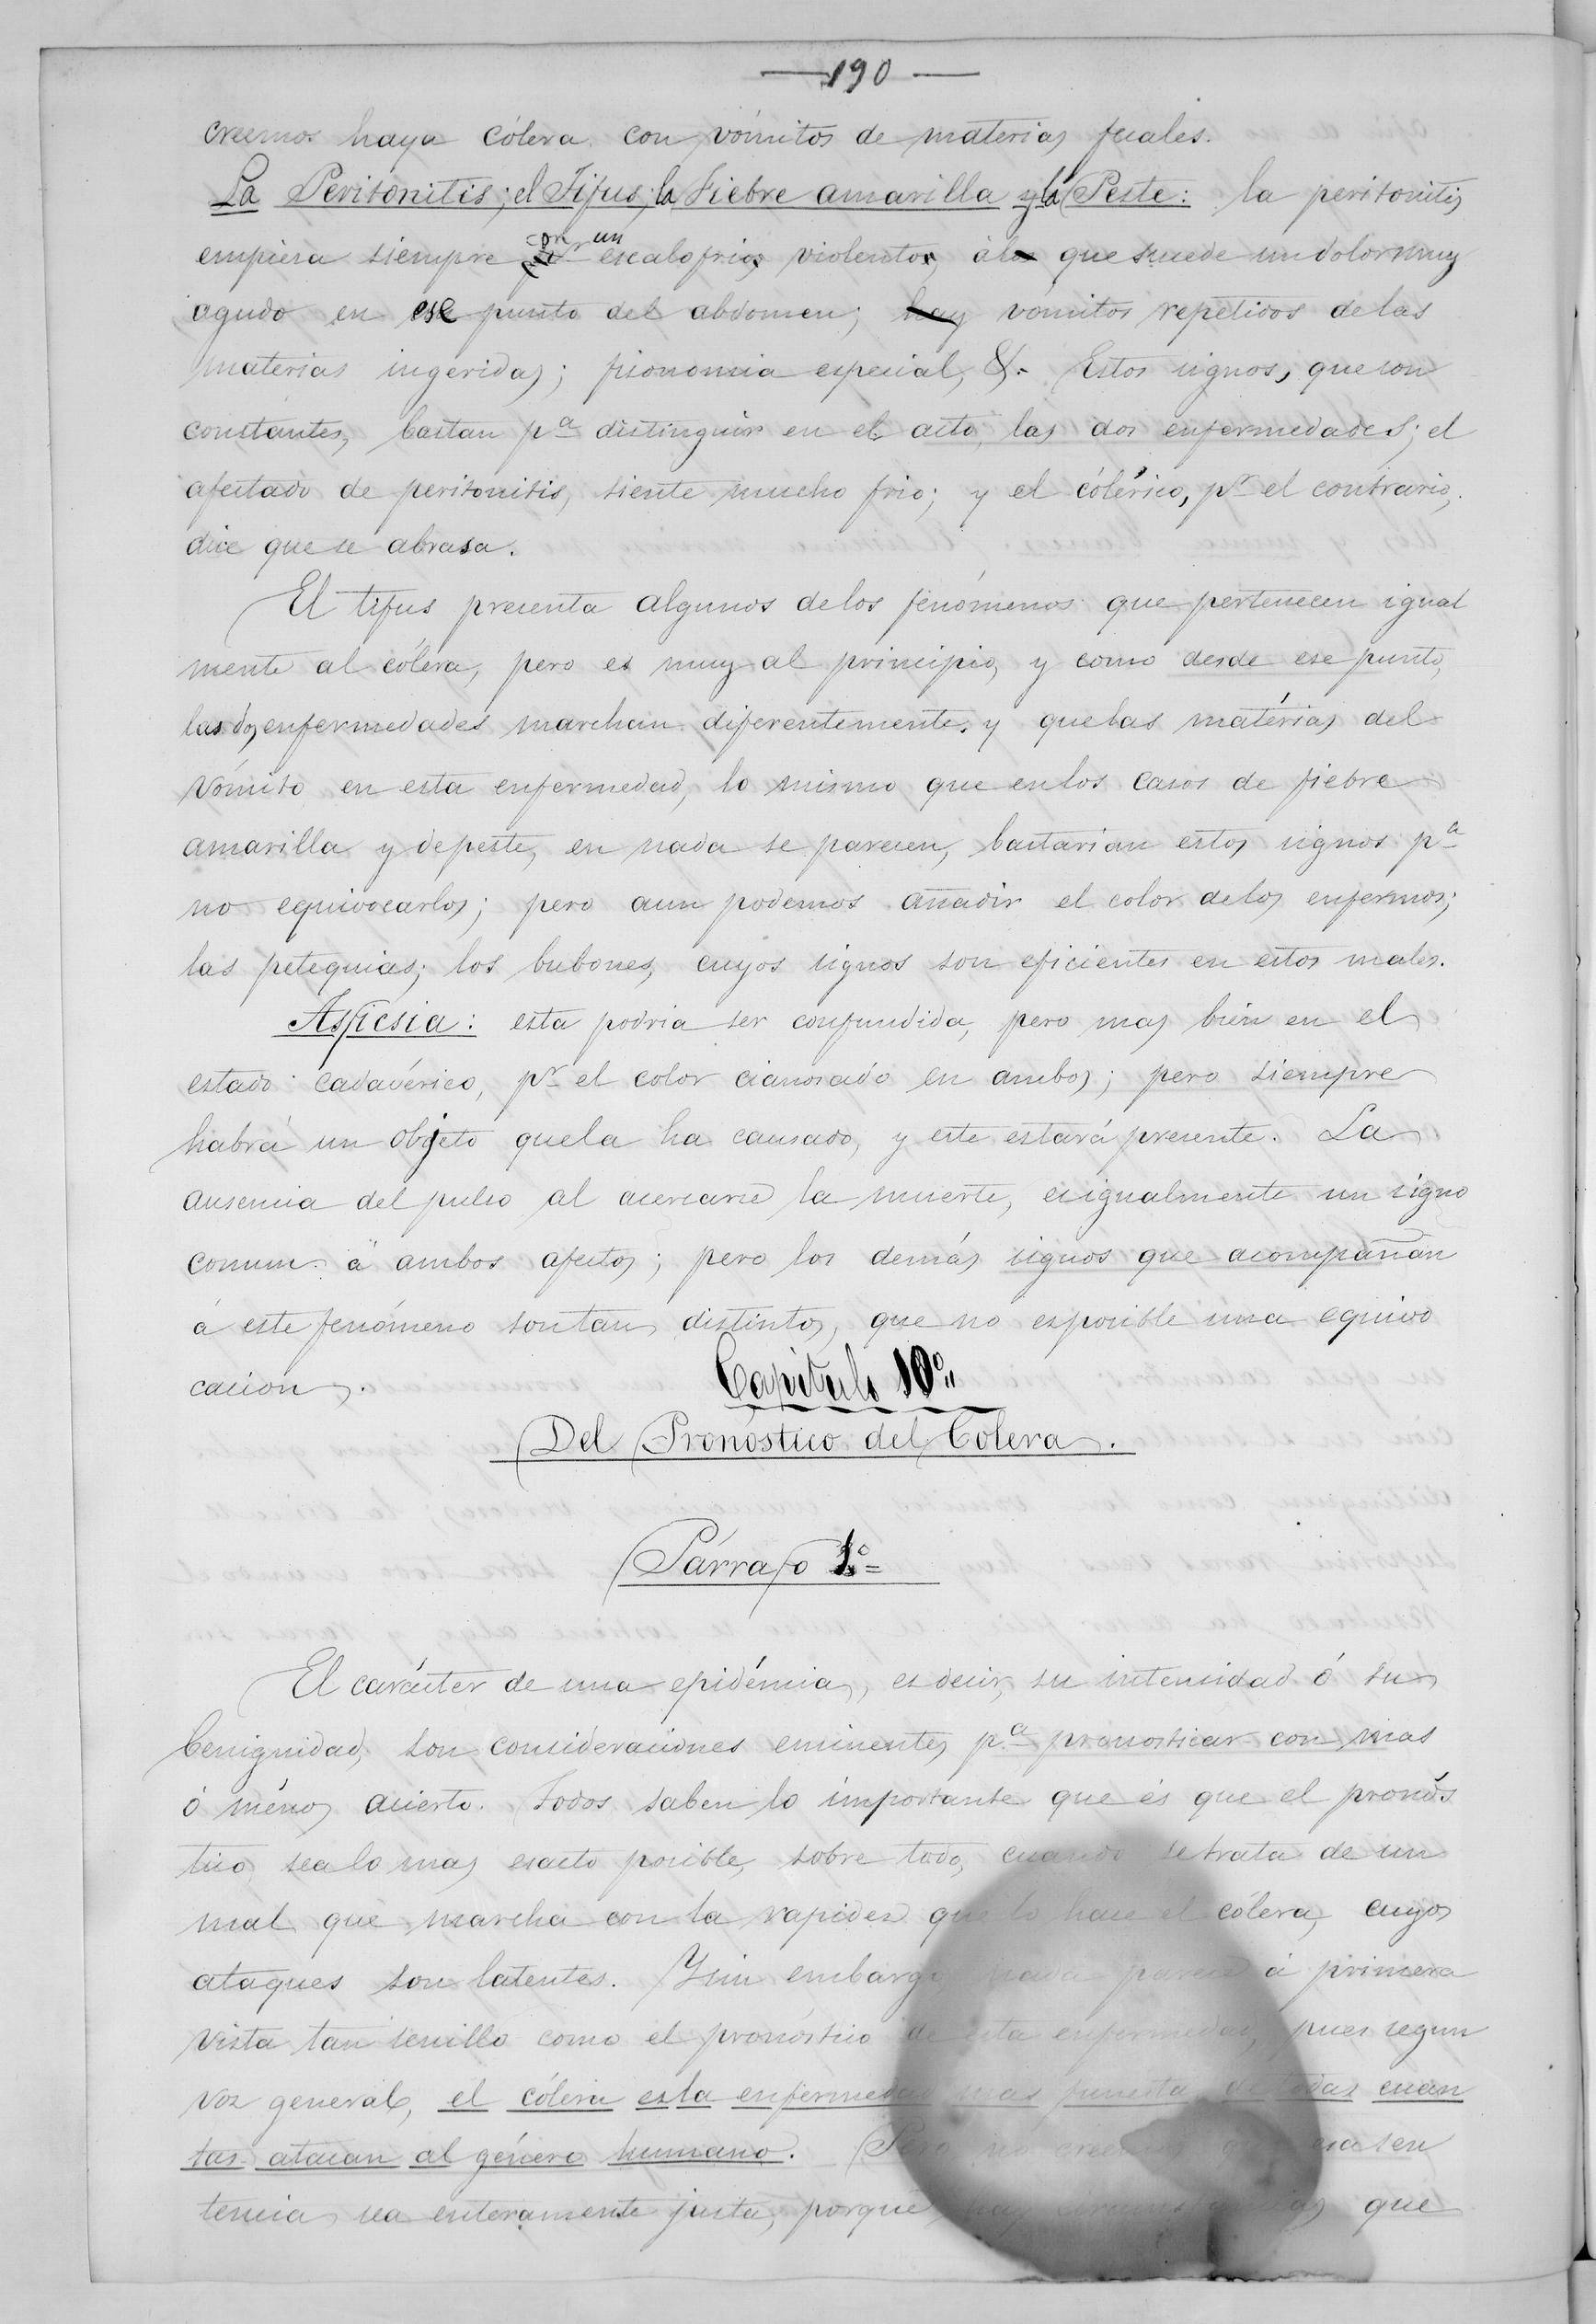 —190—
creemos haya cólera con vómitos de materias fecales.
La Peritonitis; el Tifus; la Fiebre amarilla y la Peste: la peritonitis
empieza siempre con un escalofrio violento, al que sucede un dolor muy
agudo en ese punto del abdomen; hay vómitos repetidos de las
materias ingeridas; fisonomia especial, &. Estos signos, que son
constantes, bastan pa distinguir en el acto, las dos enfermedades; el
afectado de peritonitis, siente mucho frio; y el cólérico, pr el contrario,
dice que se abrasa.
El tifus presenta algunos de los fenómenos que pertenecen igual
mente al cólera, pero es muy al principio, y como desde ese punto,
las dos enfermedades marchan diferentemente, y que las matérias del
vómito en esta enfermedad, lo mismo que en los casos de fiebre
amarilla y de peste, en nada se parecen, bastarian estos signos pa
no equivocarlos; pero aun podemos añadir el color de los enfermos;
las petequias; los bubones, cuyos signos son eficientes en estos males.
Asficsia: esta podria ser confundida, pero mas bien en el
estado cadavérico, pr el color cianosado en ambos; pero siempre
habrá un objeto que la ha causado, y este estará presente. La
ausencia del pulso al acercarse la muerte, es igualmente un signo
comun á ambos afectos; pero los demás signos que acompañan
á este fenómeno son tan distintos, que no es posible una equivo
cacion.
Capitulo 10º
Del Pronóstico del Colera.
Párrafo 1º=
El carácter de una epidémia, es decir, su intensidad ó su
benignidad, son consideraciones eminentes pa pronosticar con mas
ó ménos acierto. Todos saben lo importante que és que el pronós
tico sea lo mas esacto posible, sobre todo, cuando se trata de un
mal que marcha con la rapidez que lo hace el cólera, cuyos
ataques son latentes. Y sin embargo, nada parece á primera
vista tan sencillo como el pronóstico de esta enfermedad, pues segun
voz general, el cólera es la enfermedad mas funesta de todas cuan
tas atacan al género humano. Pero no creemos que esa sen
tencia sea enteramente justa, porque hay circunstancias que